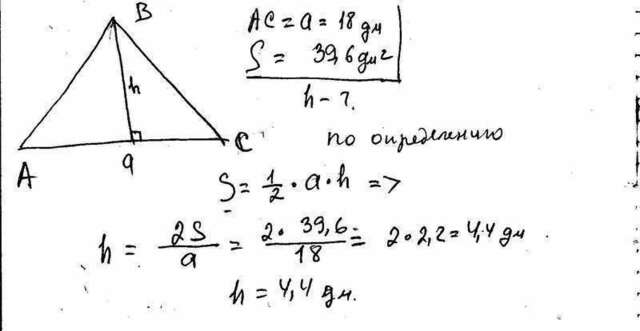 B
AC = a = 18 дм
S = 39,6 дм²
h
h - ?
A
a
C
по определению
S = 1/2 · a · h =>
h = 2S/a = 2 · 39,6/18 = 2 · 2,2 = 4,4 дм
h = 4,4 дм.